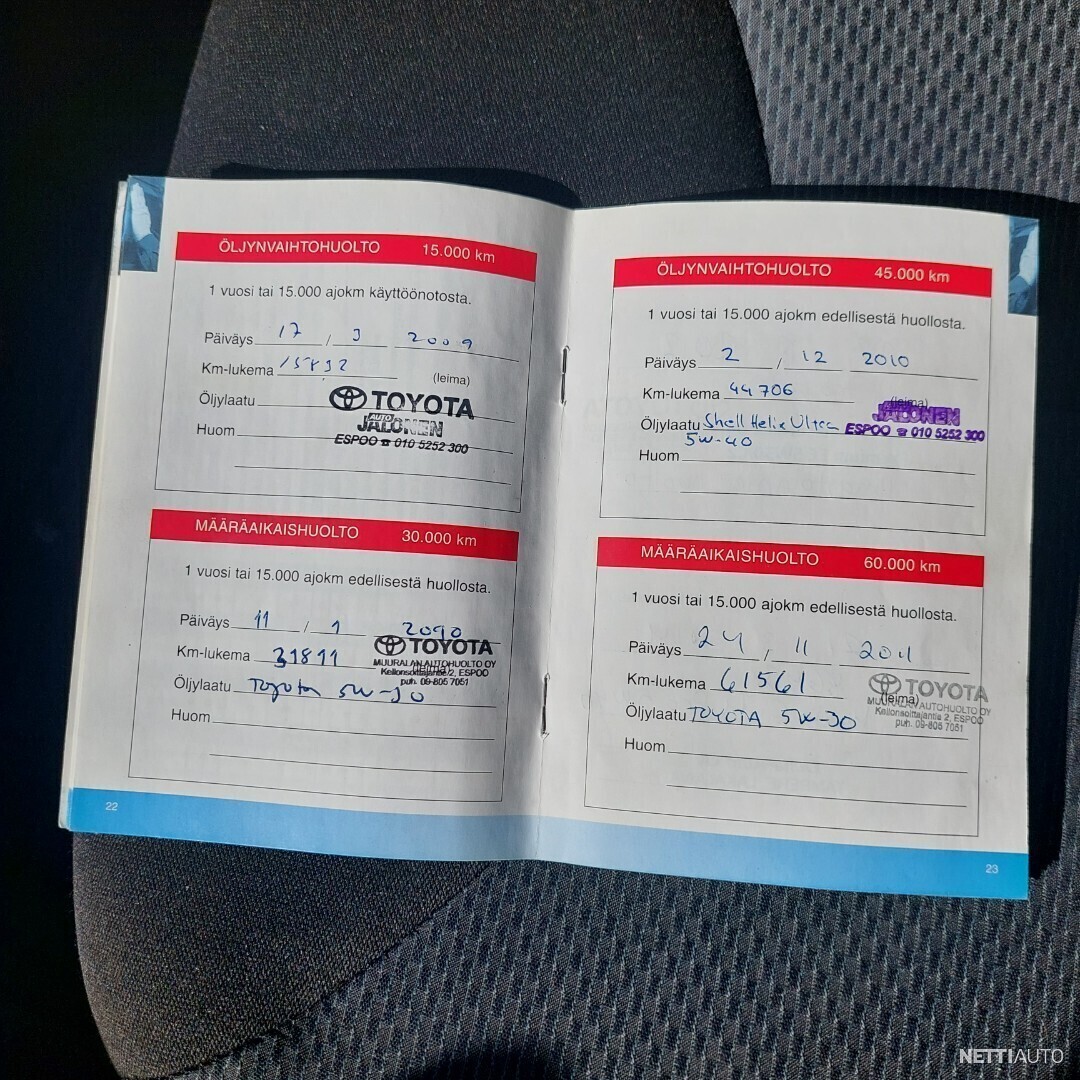 ÖLJYNVAIHTOHUOLTO 15.000 km
1 vuosi tai 15.000 ajokm käyttöönotosta.
Päiväys 17 / 3 2009
Km-lukema 15892
(leima)
Öljylaatu
TOYOTA
AUTO
JALONEN
Huom
ESPOO ☎ 010 5252 300
MÄÄRÄAIKAISHUOLTO 30.000 km
1 vuosi tai 15.000 ajokm edellisestä huollosta.
Päiväys 11 / 1 2010
Km-lukema 31811
(leima)
TOYOTA
MUURALAN AUTOHUOLTO OY
Kellonsoittajantie 2, ESPOO
puh. 09-805 7051
Öljylaatu Toyota 5W-30
Huom
22
ÖLJYNVAIHTOHUOLTO 45.000 km
1 vuosi tai 15.000 ajokm edellisestä huollosta.
Päiväys 2 / 12 2010
Km-lukema 44706
(leima)
JALONEN
ESPOO ☎ 010 5252 300
Öljylaatu Shell Helix Ultra
5W-40
Huom
MÄÄRÄAIKAISHUOLTO 60.000 km
1 vuosi tai 15.000 ajokm edellisestä huollosta.
Päiväys 24 / 11 2011
Km-lukema 61561
(leima)
TOYOTA
MUURALAN AUTOHUOLTO OY
Kellonsoittajantie 2, ESPOO
puh. 09-805 7051
Öljylaatu TOYOTA 5W-30
Huom
23
NETTIAUTO